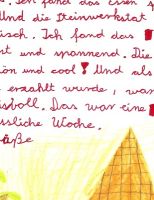 . Ich fand das essen
Und die Steinwerkstat
isch. Ich fand das
t und spannend. Die
ön und cool! Und als
erzahlt wurde, wan
isvoll. Das war eine
ssliche Woche.
üße